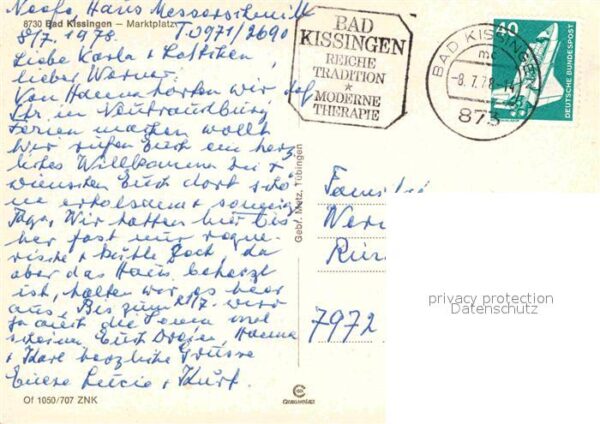 Haus Messerschmitt
8730 Bad Kissingen – Marktplatz
8/7. 1978. T 0971/2690
Liebe Karla + 
lieber Werner.
Von Hanna hörten wir daß
Ihr in Neutrauchburg
Ferien machen wollt
Wir rufen Euch ein herz
liches Willkommen zu +
wünschen Euch dort schö
ne erholsame + sonnige
Tage. Wir hatten hier bis
her fast nur regne
rische + kühle Doch da
aber das Haus beheizt
ist, halten wir es hier
aus. Bis zum 21/7. wird
ja auch die Sonne mal
scheinen Euch Hanna
+ Karl herzliche Grüsse
Eure Lucie + Kurt.
Of 1050/707 ZNK
BAD
KISSINGEN
REICHE
TRADITION
*
MODERNE
THERAPIE
BAD KISSINGEN
-8.7.78-14
873
40
DEUTSCHE BUNDESPOST
Gebr. Metz, Tübingen
7972
privacy protection
Datenschutz